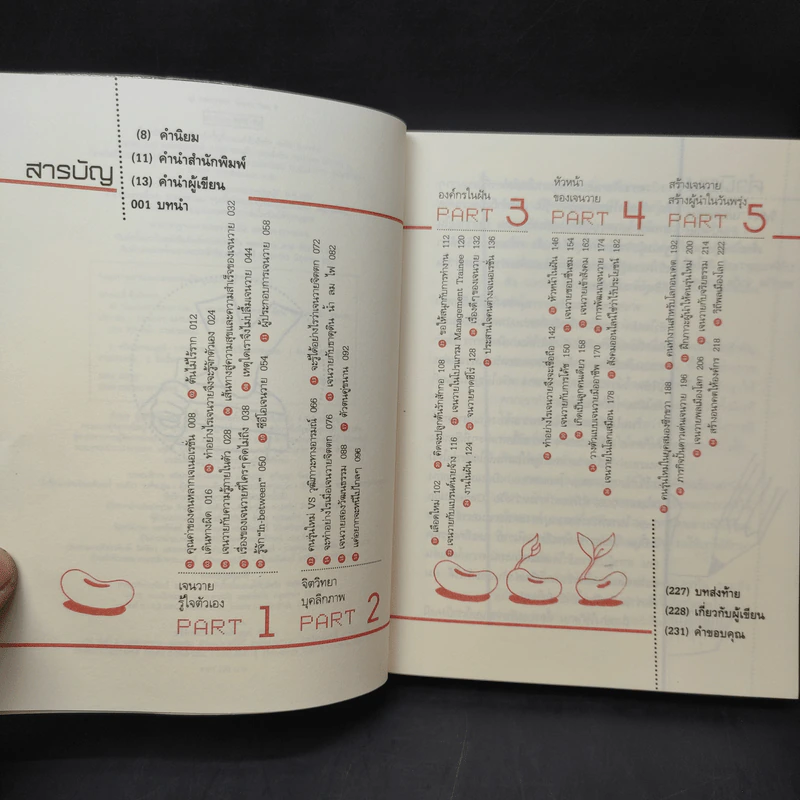 สารบัญ
(8) คำนิยม
(11) คำนำสำนักพิมพ์
(13) คำนำผู้เขียน
001 บทนำ
เจนวาย
รู้ใจตัวเอง
PART 1
คุณค่าของคนหลากเจเนอเรชั่น 008
ต้นไม้ไร้ราก 012
เดินทางผิด 016
ทำอย่างไรเจนวายจึงจะรู้จักตัวเอง 024
เจนวายกับความรู้ภายในตัว 028
เส้นทางสู่ความสุขและความสำเร็จของเจนวาย 032
เรื่องของเจนวายที่ใครๆ คิดไม่ถึง 038
เหตุใดเราจึงไม่ปลื้มเจนวาย 044
รู้จัก "In-between" 050
ซีอีโอเจนวาย 054
ผู้ประกอบการเจนวาย 058
จิตวิทยา
บุคลิกภาพ
PART 2
คนรุ่นใหม่ VS วุฒิภาวะทางอารมณ์ 066
จะรู้ได้อย่างไรว่าเจนวายจิตตก 072
จะทำอย่างไรเมื่อเจนวายจิตตก 076
เจนวายกับธาตุดิน น้ำ ลม ไฟ 082
เจนวายสองวัฒนธรรม 088
ตัวตนคู่ขนาน 092
แค่อยากจะหนีไปไกลๆ 096
องค์กรในฝัน
PART 3
เลือดใหม่ 102
คิดจะปลูกต้นรักสักกอ 108
ขอให้สนุกกับการทำงาน 112
เจนวายกับแบรนด์นายจ้าง 116
เจนวายในโปรแกรม Management Trainee 120
งานในฝัน 124
เจนวายขาดฮีโร่ 128
เรื่องดีๆ ของเจนวาย 132
ประสานใจคนต่างเจเนอเรชั่น 136
หัวหน้า
ของเจนวาย
PART 4
ทำอย่างไรเจนวายจึงจะเชื่อถือ 142
หัวหน้าในฝัน 146
เจนวายกับการโค้ช 150
เจนวายชอบชื่นชม 154
เกิดเป็นลูกคนเดียว 158
เจนวายเข้าสังคม 162
วางตัวแบบเจนวายมืออาชีพ 170
การพัฒนาเจนวาย 174
เจนวายในโลกเสมือน 178
สังคมออนไลน์ใช่ว่าไร้ประโยชน์ 182
สร้างเจนวาย
สร้างผู้นำในวันพรุ่ง
PART 5
คนรุ่นใหม่ในยุคสมองซีกขวา 188
คนทำงานสำหรับโลกอนาคต 192
ภารกิจปั้นดาวเด่นเจนวาย 196
ฝึกภาวะผู้นำให้คนรุ่นใหม่ 200
เจนวายพลเมืองโลก 206
เจนวายกับจริยธรรม 214
สร้างอนาคตให้องค์กร 218
วิถีพลเมืองโลก 222
(227) บทส่งท้าย
(228) เกี่ยวกับผู้เขียน
(231) คำขอบคุณ